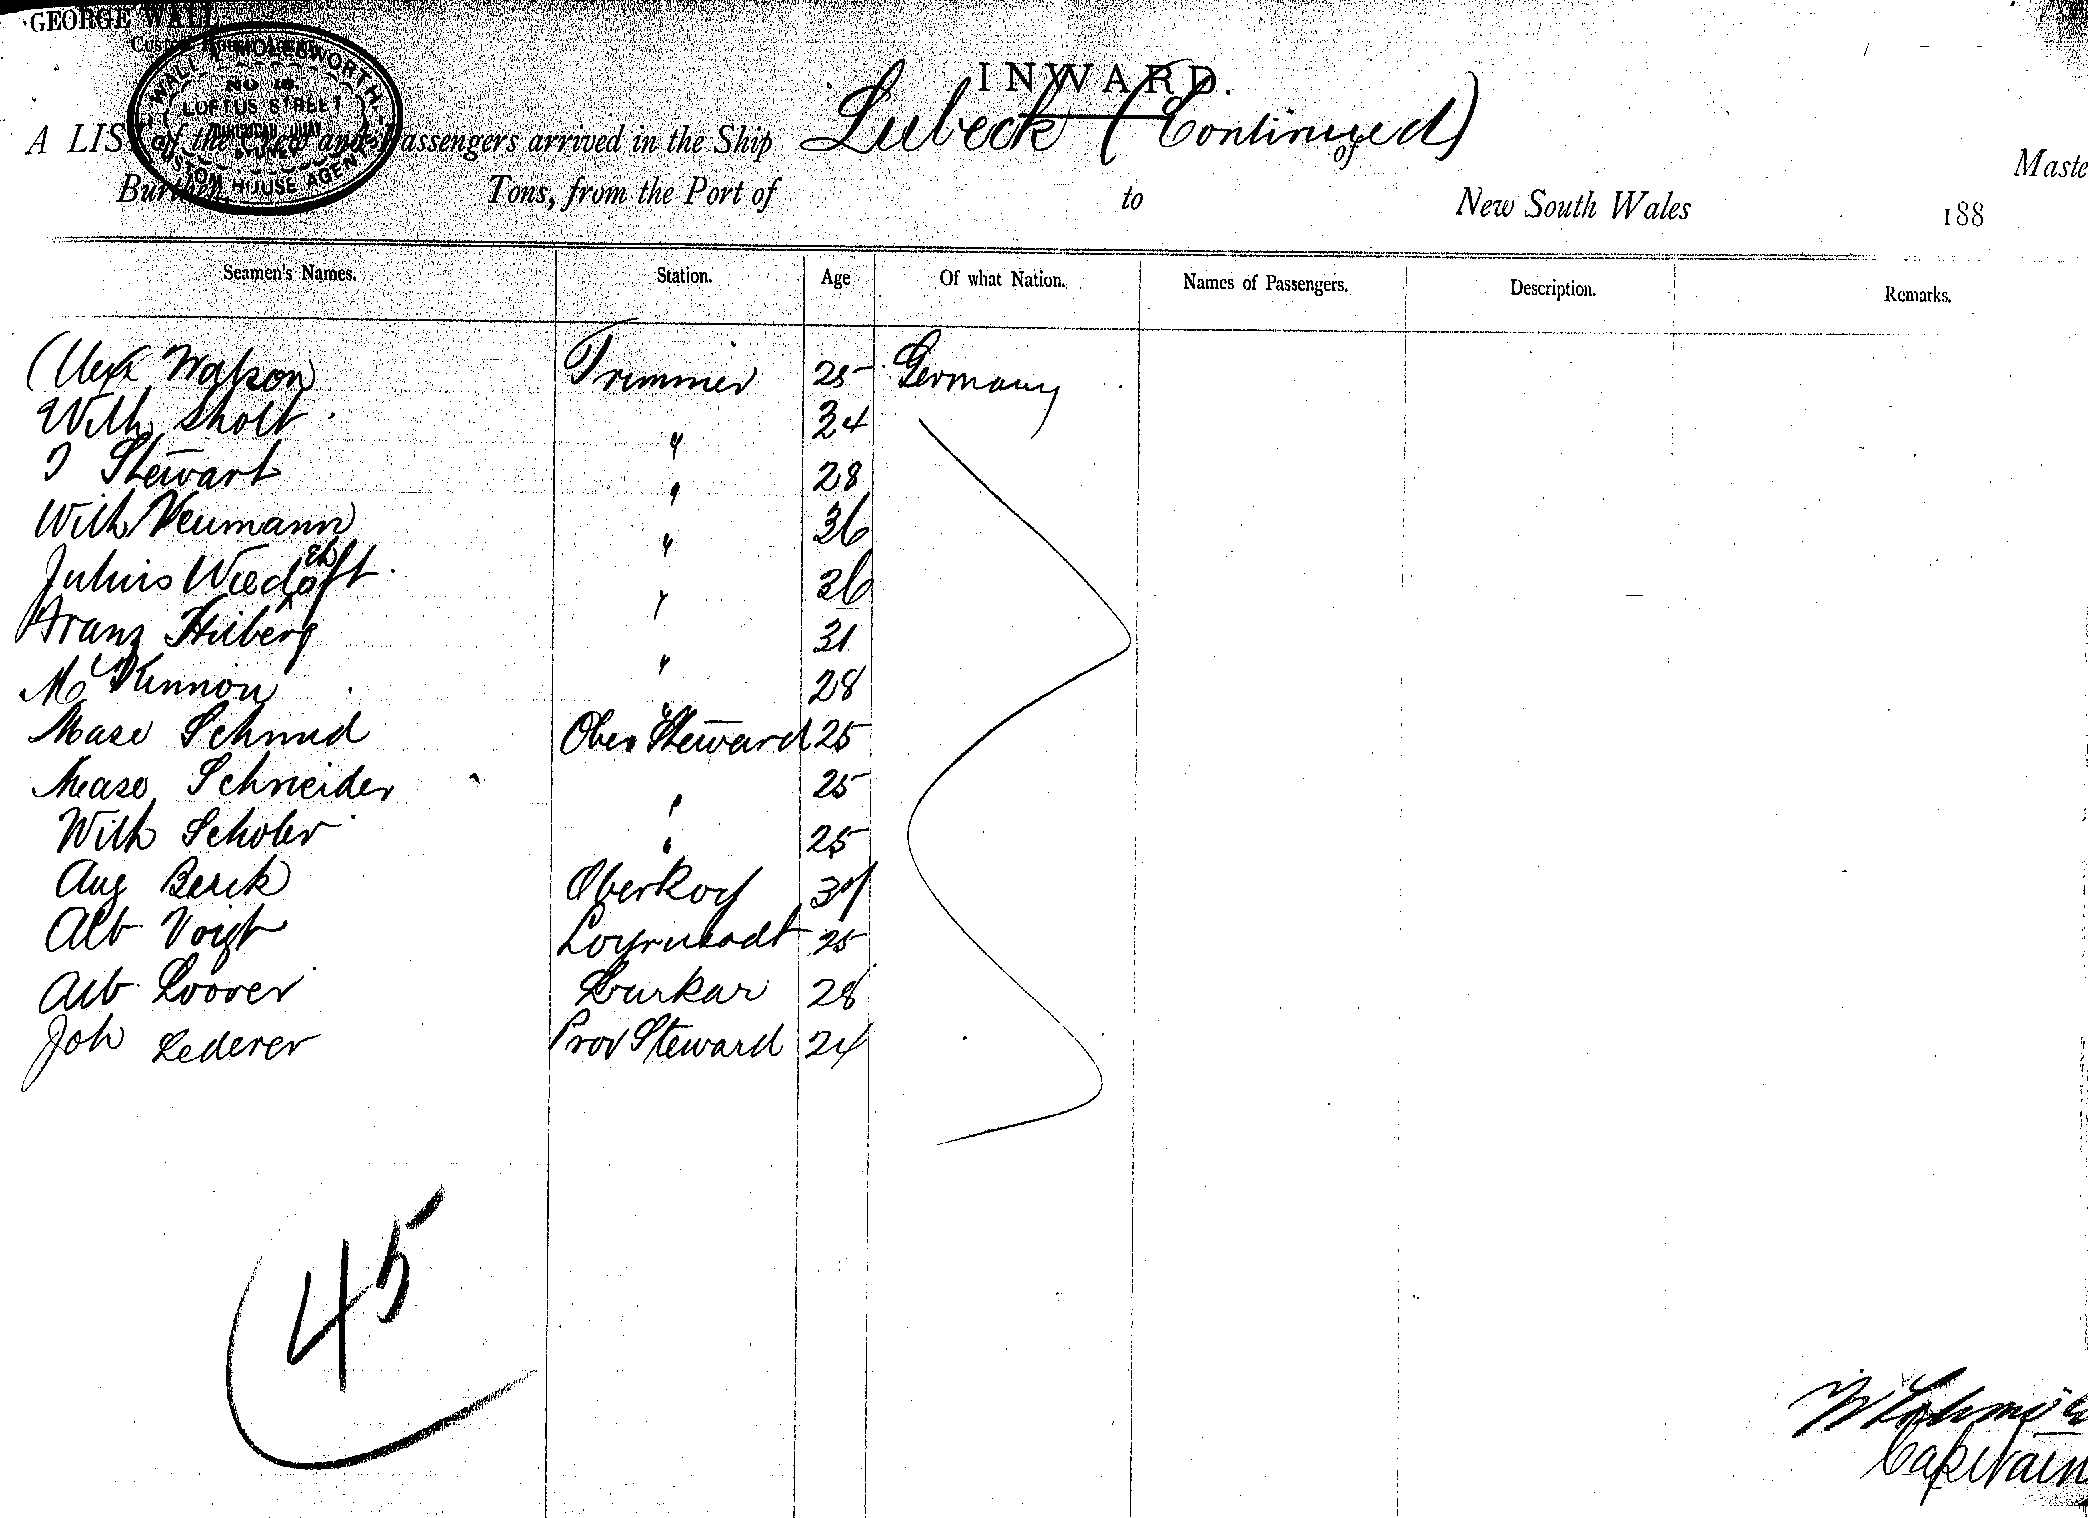 GEORGE WALL
WALL & MOLESWORTH
No 18.
LOFTUS STREET
CUSTOM HOUSE AGENTS
INWARD.
A LIST of the Crew and Passengers arrived in the Ship Lubeck (Continued) of Maste
Burthen, Tons, from the Port of to New South Wales 188
Seamen's Names. Station. Age Of what Nation. Names of Passengers. Description. Remarks.
Alex Watson Trimmer 25 Germany
Wilh Sholt " 24
J Stewart " 28
Wilh Neumann " 36
Julius " 36
Franz Hilberg " 31
McKinnon " 28
Schmid Ober Steward 25
Schneider " 25
Wilh Schober " 25
Aug Berck Oberkoch 37
Alb Voigt 25
Alb 28
Joh Lederer Prov Steward 24
45
Capitain